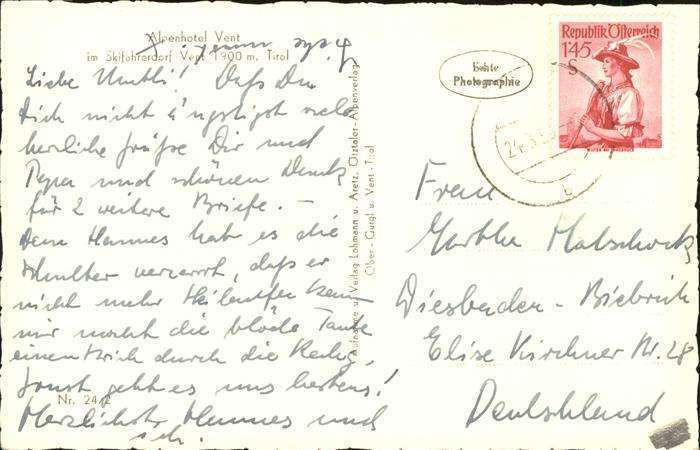 Alpenhotel Vent
im Skiführerdorf Vent 1900 m, Tirol
Liebe Mutti! Daß Du
Dich nicht ängstigst viele
herzliche Grüße Dir und
Papa und schönen Dank
für 2 weitere Briefe. —
Dem Hannes hat es die
Schulter verzerrt, daß er
nicht mehr Skilaufen kann
mir macht die blöde Tante
einen Strich durch die
sonst geht es uns bestens!
Herzlichst Hannes und
ich.
Nr. 24/2
Aufnahme u. Verlag Lohmann u. Aretz, Ötztaler-Alpenverlag
Ober-Gurgl u. Vent-Tirol
Echte
Photographie
Republik Österreich
1.45
Frau
Martha
Wiesbaden - Biebrich
Elise Kirchner Nr. 28
Deutschland